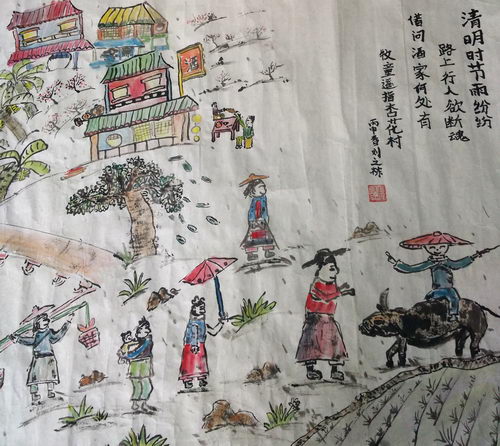 清明时节雨纷纷
路上行人欲断魂
借问酒家何处有
牧童遥指杏花村
丙申春刘之
酒